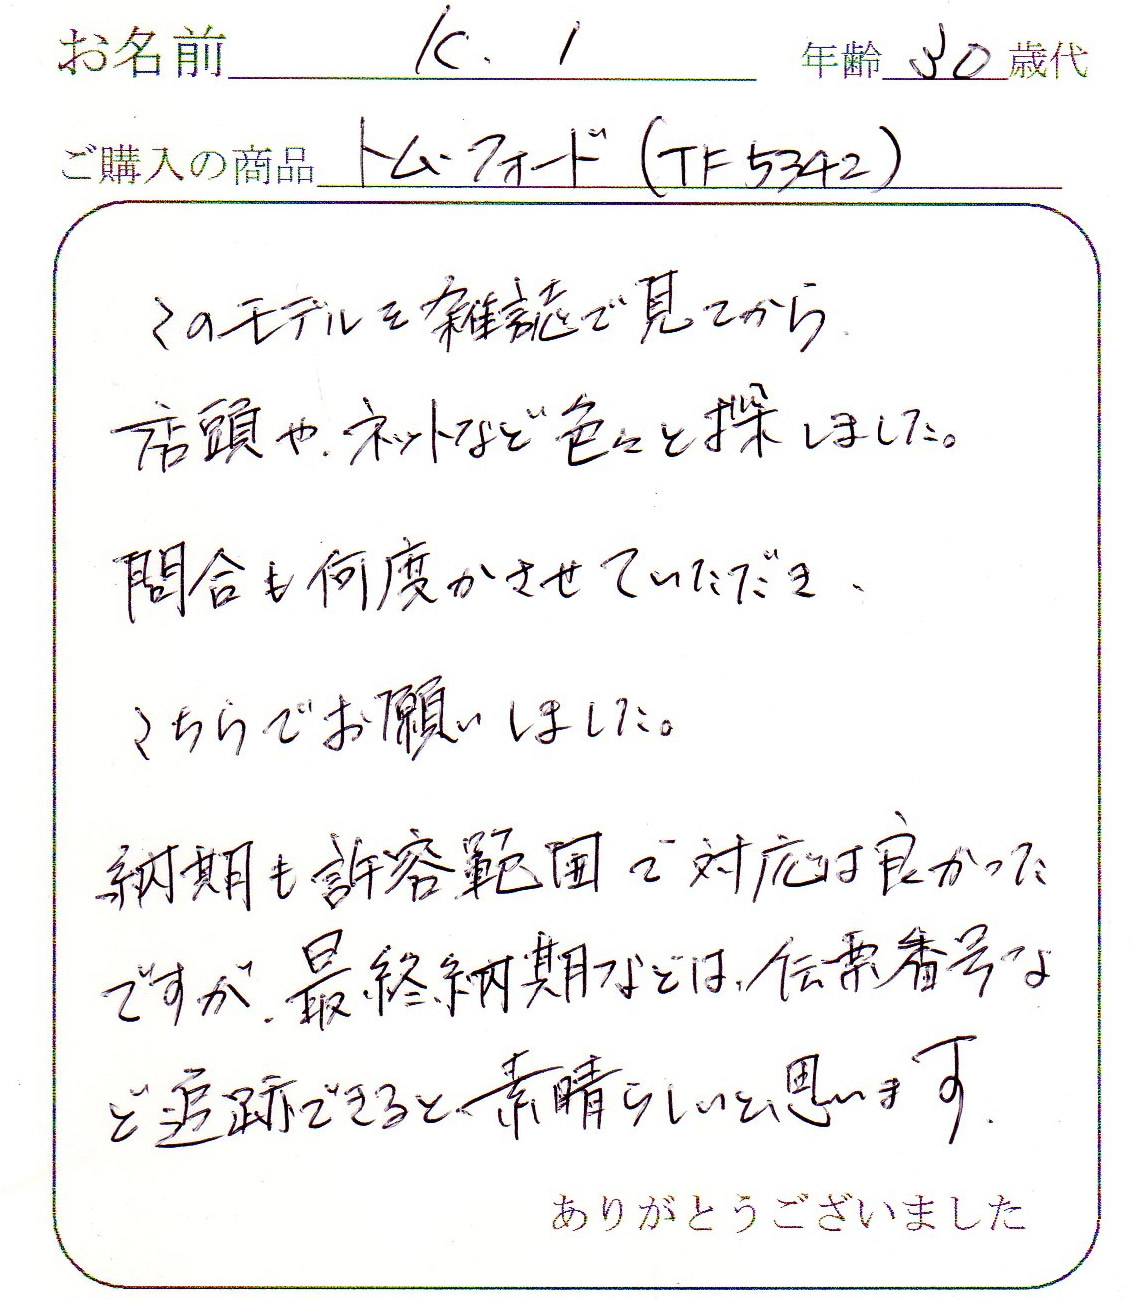 お名前 K. I 年齢 30 歳代
ご購入の商品 トム・フォード (TF5342)
このモデルを雑誌で見てから
店頭や、ネットなど色々と探しました。
問合も何度かさせていただき、
こちらでお願いしました。
納期も許容範囲で対応は良かった
ですが、最終納期などは、伝票番号な
ど追跡できると、素晴らしいと思います.
ありがとうございました